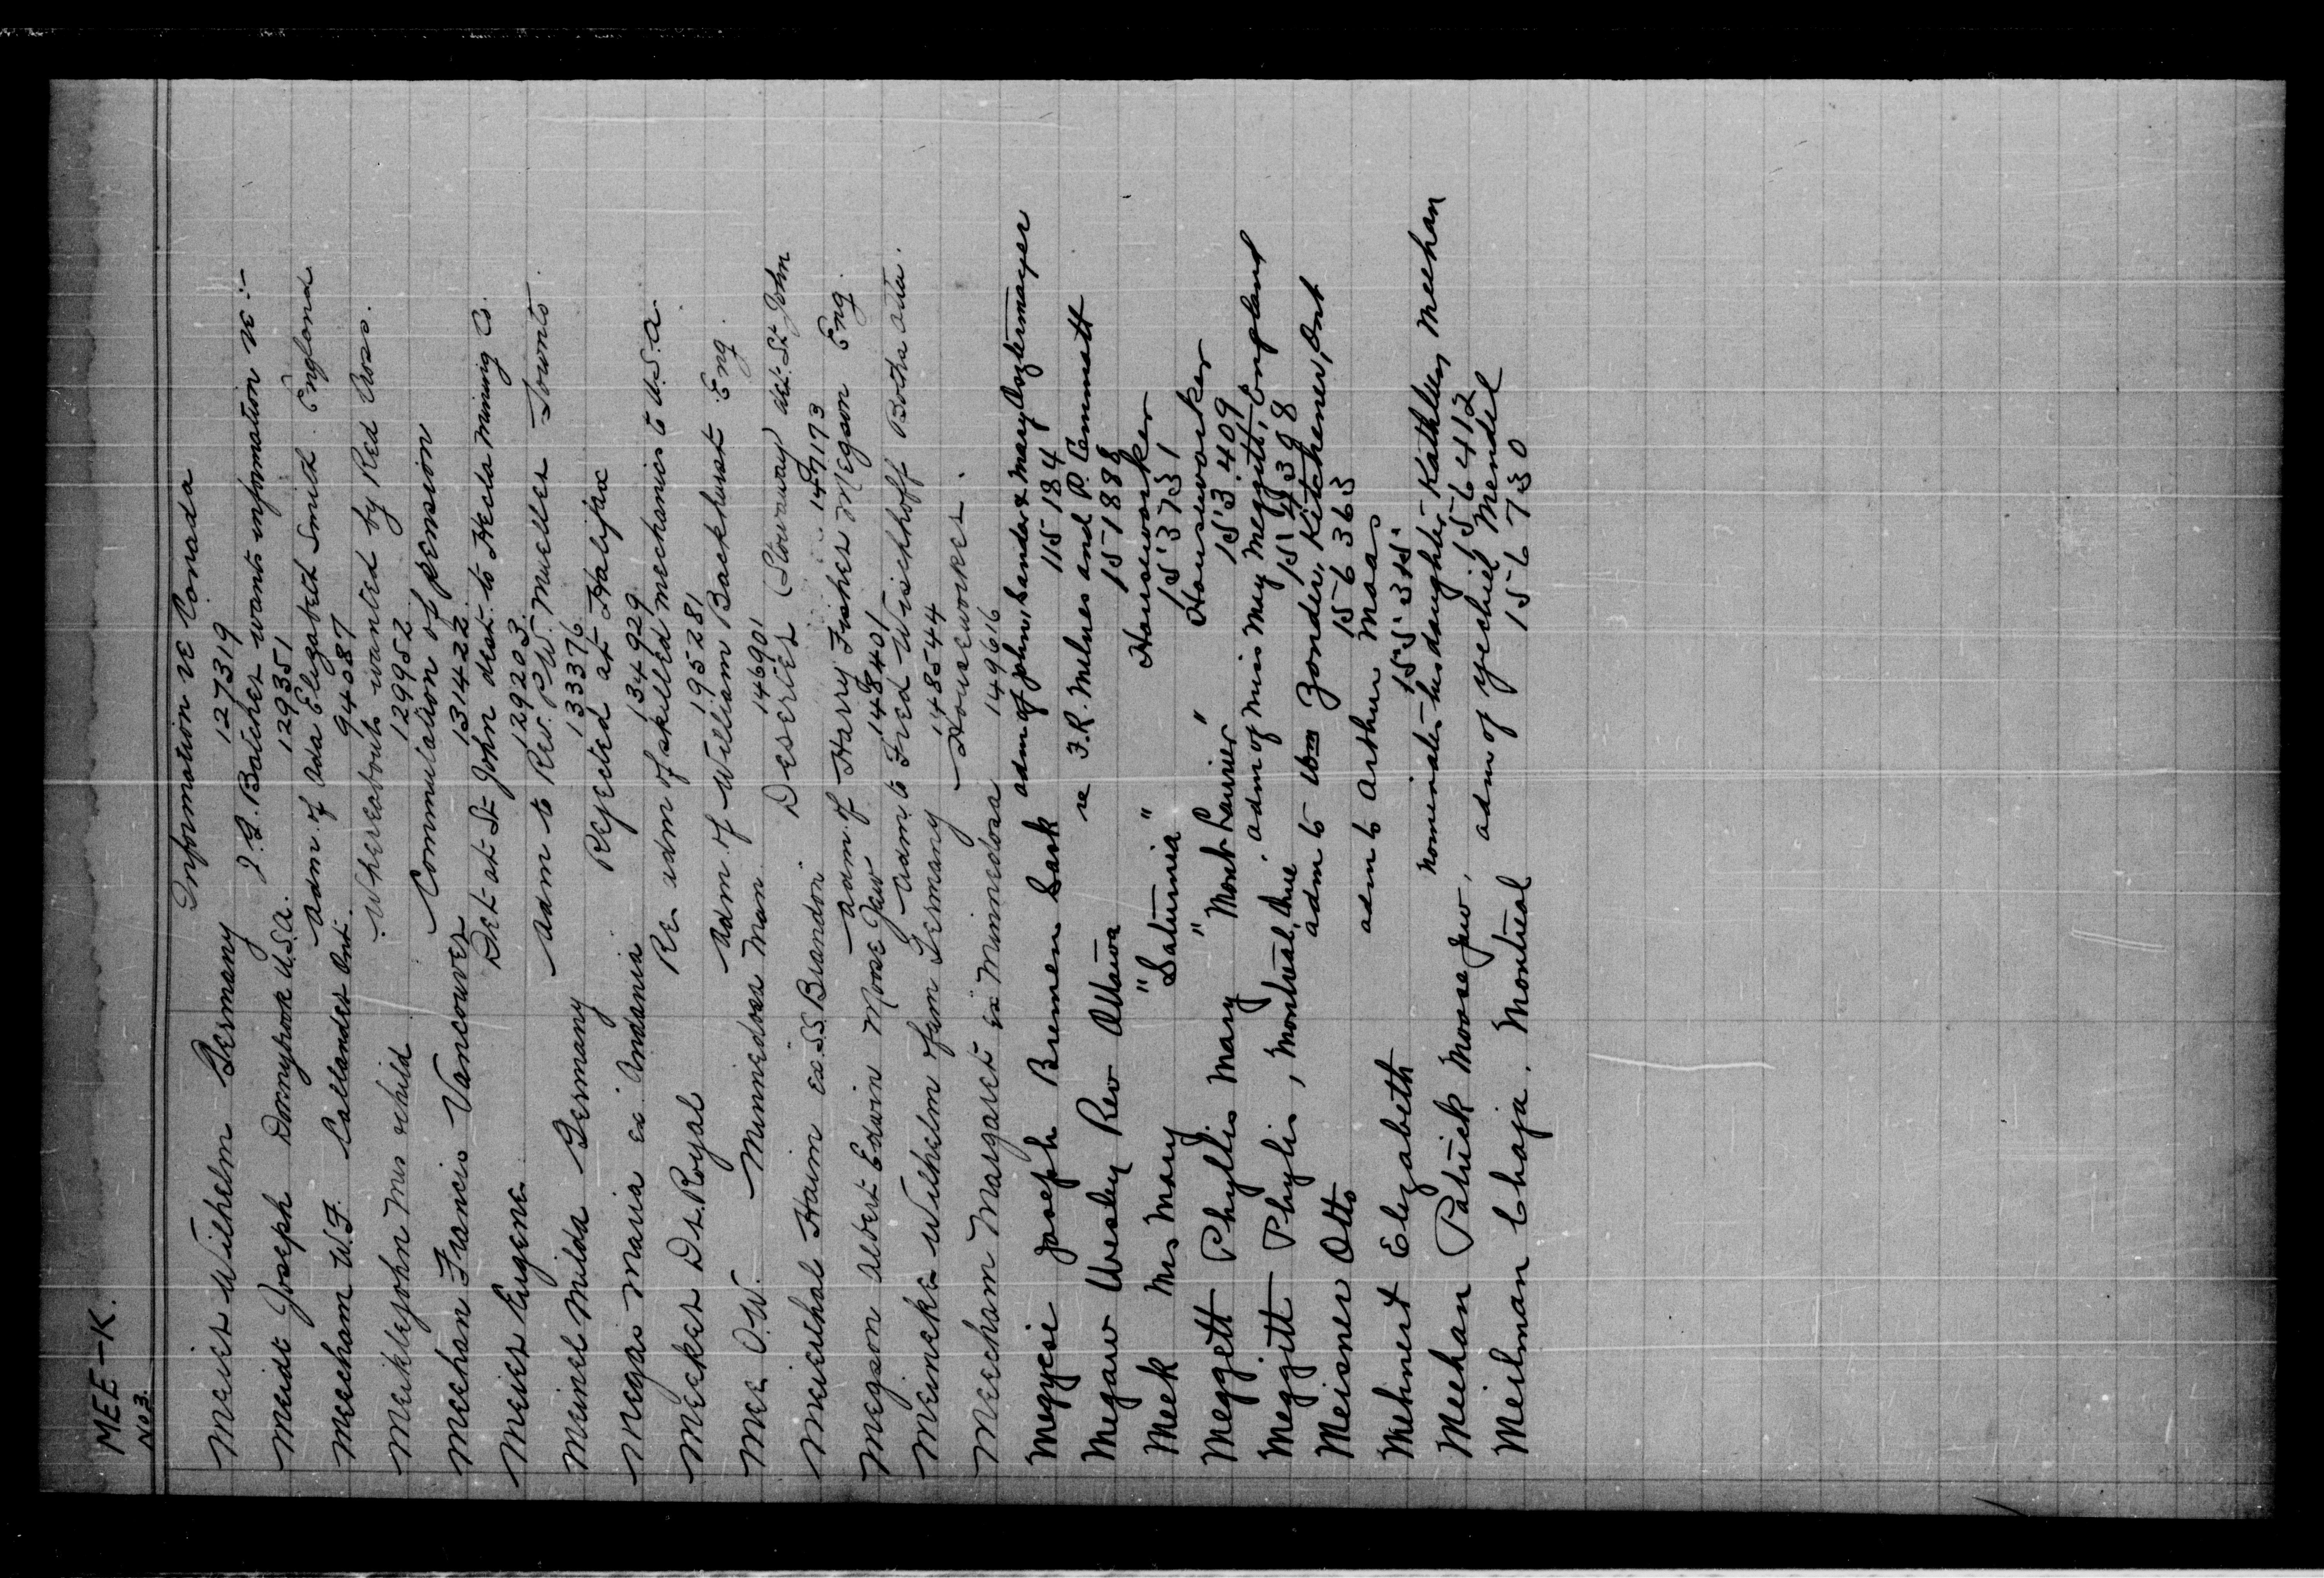 MEE-K.
No 3.
Meier Wilhelm Germany Information re Canada
127319
Meidt Joseph Donnybrook U.S.A. wants information re:-
129351
Meecham W.F. Callander Ont. Adm. of Ada Elizabeth Smith. England
94087
Meiklejohn Mrs & child Whereabouts wanted by Red Cross.
129952
Meehan Francis Vancouver Commutation of pension
131422
Meier Eugene Det at St John dest. to Hecla Mining Co.
129203
Meinel Milda Germany Adm to Rev. P.W. Mueller Toronto
133376
Megas Maria ex Andania Rejected at Halifax
134929
Meeker Dr. Royal Re adm of skilled mechanics to U.S.A.
195281
Mee O.W. Adm of William Backhurst Eng.
146901
Meierthal Haim ex S.S. Brandon Deserter (Stowaway) at St John
147173
Megson Albert Edwin Moose Jaw Adm. of Harry Fisher Megson Eng.
148401
Meineke Wilhelm fam Germany Adm to Fred Wischhoff Botha Alta.
148544
Meecham Margaret ex Minnedosa Houseworker.
149616
Megyesi Joseph Bremen Sask adm of John, Sandor & Mary
115184
Megaw Wesley Rev Ottawa re F.R. Milnes and P. Cammatt
151888
Meek Mrs Mary "Saturnia" Houseworker
153731
Meggett Phyllis Mary "Montlaurier" Houseworker
153409
Meggitt Phylis, Montreal, Que. adm of Miss May Meggitt, England
154398
Meisner Otto adm to Zonder, Kitchener, Ont
156363
Mehnert Elizabeth adm to Arthur Maas
155355
Meehan Patrick Moose Jaw, nominates his daughter Kathleen Meehan
156412
Meilman Chaja. Montreal adm of Yechiel Mendel
156730